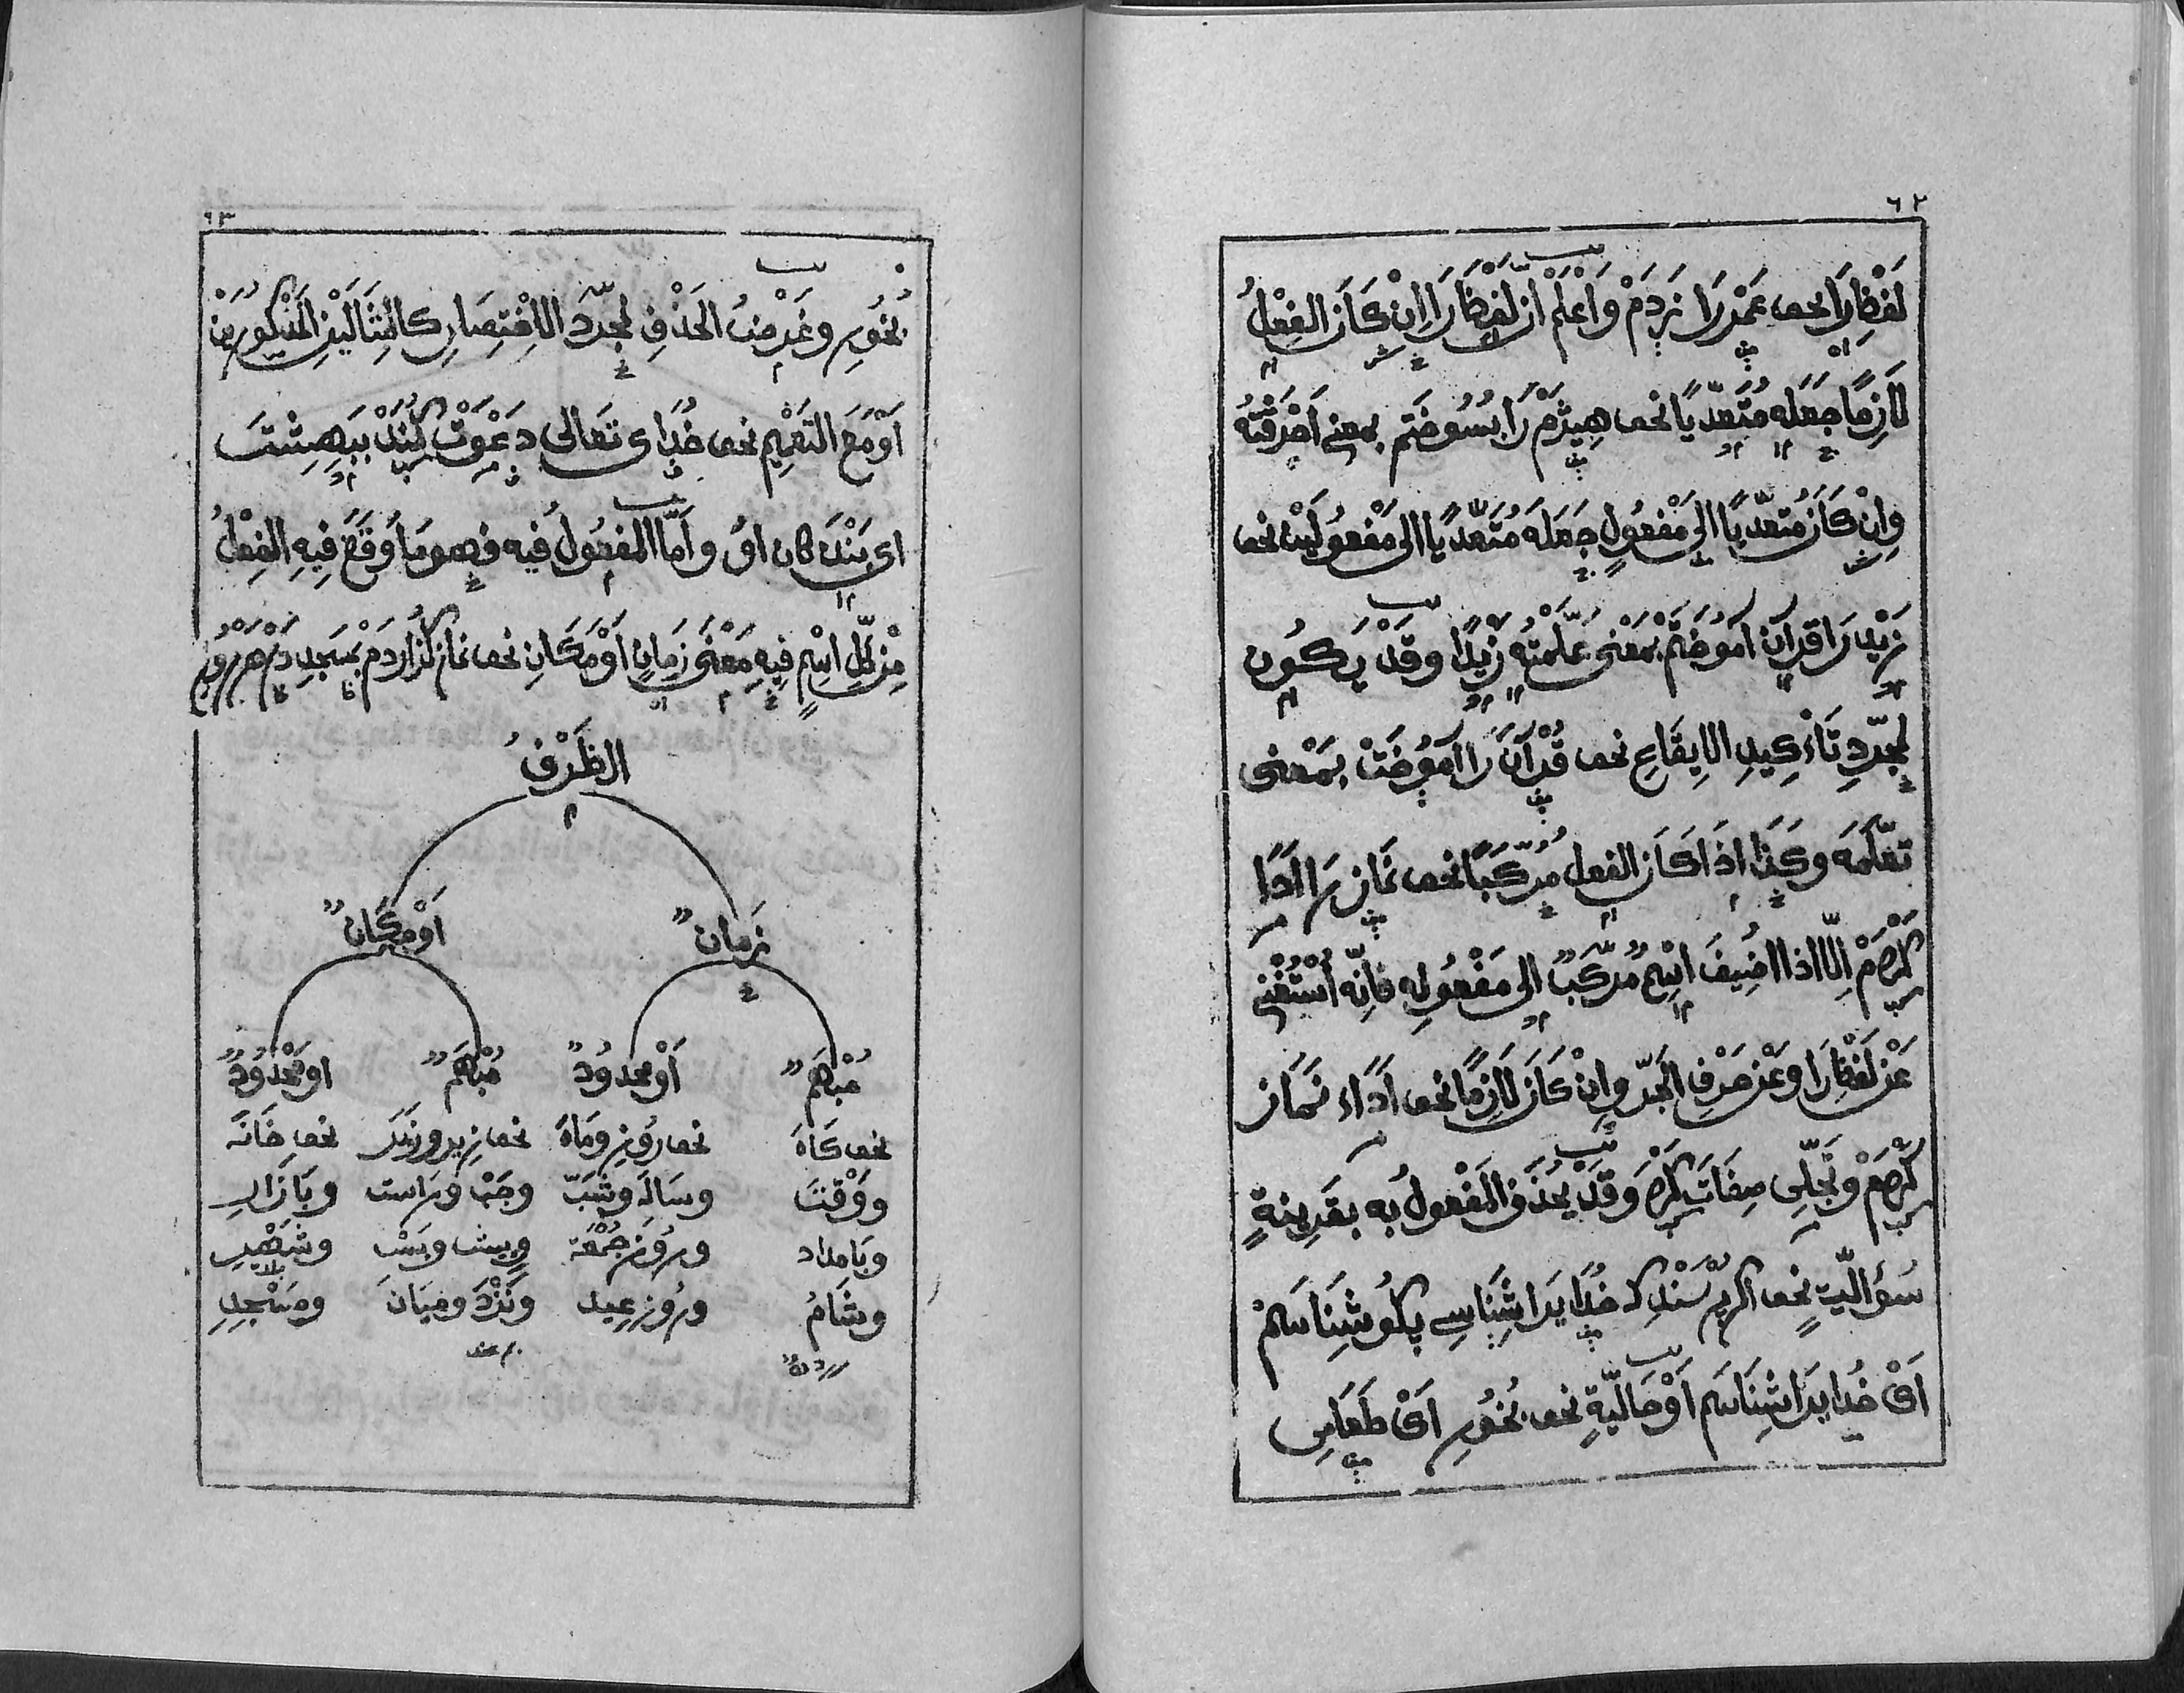 ٦٢
لَفْظِ رَا نحو عَمْرْ رَا زَدَمْ وَاعْلَمْ أَنَّ لَفْظَ رَا إِنْ كَانَ الفِعْلُ
لَازِمًا جَعَلَه مُتَعَدِّيًا نحو هِيزَمْ رَا بُسُوخْتَم بمعنى اَحْرَقْتُهُ
وَاِنْ كَانَ مُتَعَدِّيًا الى مَفْعُولٍ جَعَلَه مُتَعَدِّيًا الى مَفْعُولَيْنِ نحو
زَيْد رَا قرآن آمُوخْتَمْ بمَعْنى عَلَّمْتُهُ زَيْدًا وقَدْ يَكُون
لِمجَرَّدِ تَاءْكِيدِ الاِيقَاعِ نحو قُرْآنْ رَا آمُوخْتْ بمَعْنى
تَعَلَّمَه وكَذَا اِذَا كَانَ الفعل مُرَكَّبًا نحو نَمَاز رَا اَدَا
كَرْدَمْ اِلَّا اذا اُضِيفَ اسْمٌ مُرَكَّبٌ الى مَفْعُولِه فاِنّه اُسْتُغْنِىَ
عَنْ لَفْظِ رَا وعَنْ حَرْفِ الجَرِّ واِنْ كَانَ لَازِمًا نحو اَدَاء نَمَاز
كَرْدَمْ وتَجَلِّى صِفَاتْ كَرْد وَقَدْ يُحْذَفُ المَفْعُولُ به بقَرِينَةٍ
سُؤَالِيَّةٍ نحو اگر پُرْسَنْد كه خُدَا يَرَا شِنَاسِى بگُو شِنَاسَمْ
اَىْ خُدا يَرَا شِنَاسَم اَوْ حَالِيَّةٍ نحو بُخُور اَىْ طَعَام
٦٣
بُخُور وغَرَضُ الحَذْفِ لِمجَرَّدِ الاِخْتِصَارِ كالمِثَالَيْنِ المَذْكُورَيْنِ
اَوْ مَعَ التَعْمِيم نحو خُدَاى تَعَالى دَعْوَتْ كُنَدْ بَبَهِشْتْ
اى بَنْدَكان اوُ واَمَّا المفعُولُ فيه فهو مَا وَقَعَ فِيهِ الفِعْلُ
مِنْ كُلِّ اسْمٍ فِيهِ مَعْنَى زَمَانٍ اَوْ مَكَانٍ نحو نماز گُزَارْدَمْ بمَسْجِد دَرْ هَر رُوز
الظَرْفُ
زَمان
اَوْ مكَان
مُبْهَم اَوْ محدُود مُبْهَم او مَحْدُودٌ
نحو كَاه نحو رُوز وماه نحو زير وزَبَر نحو خَانَه
ووَقْت وسَال وشَب وچَپ ورَاست وبَازَار
وبَامداد ورُوز جُمْعَه وپيش وپَس وشَهْر
وشَام ورُوز عِيد ونَزْد وميَان ومَسْجِد